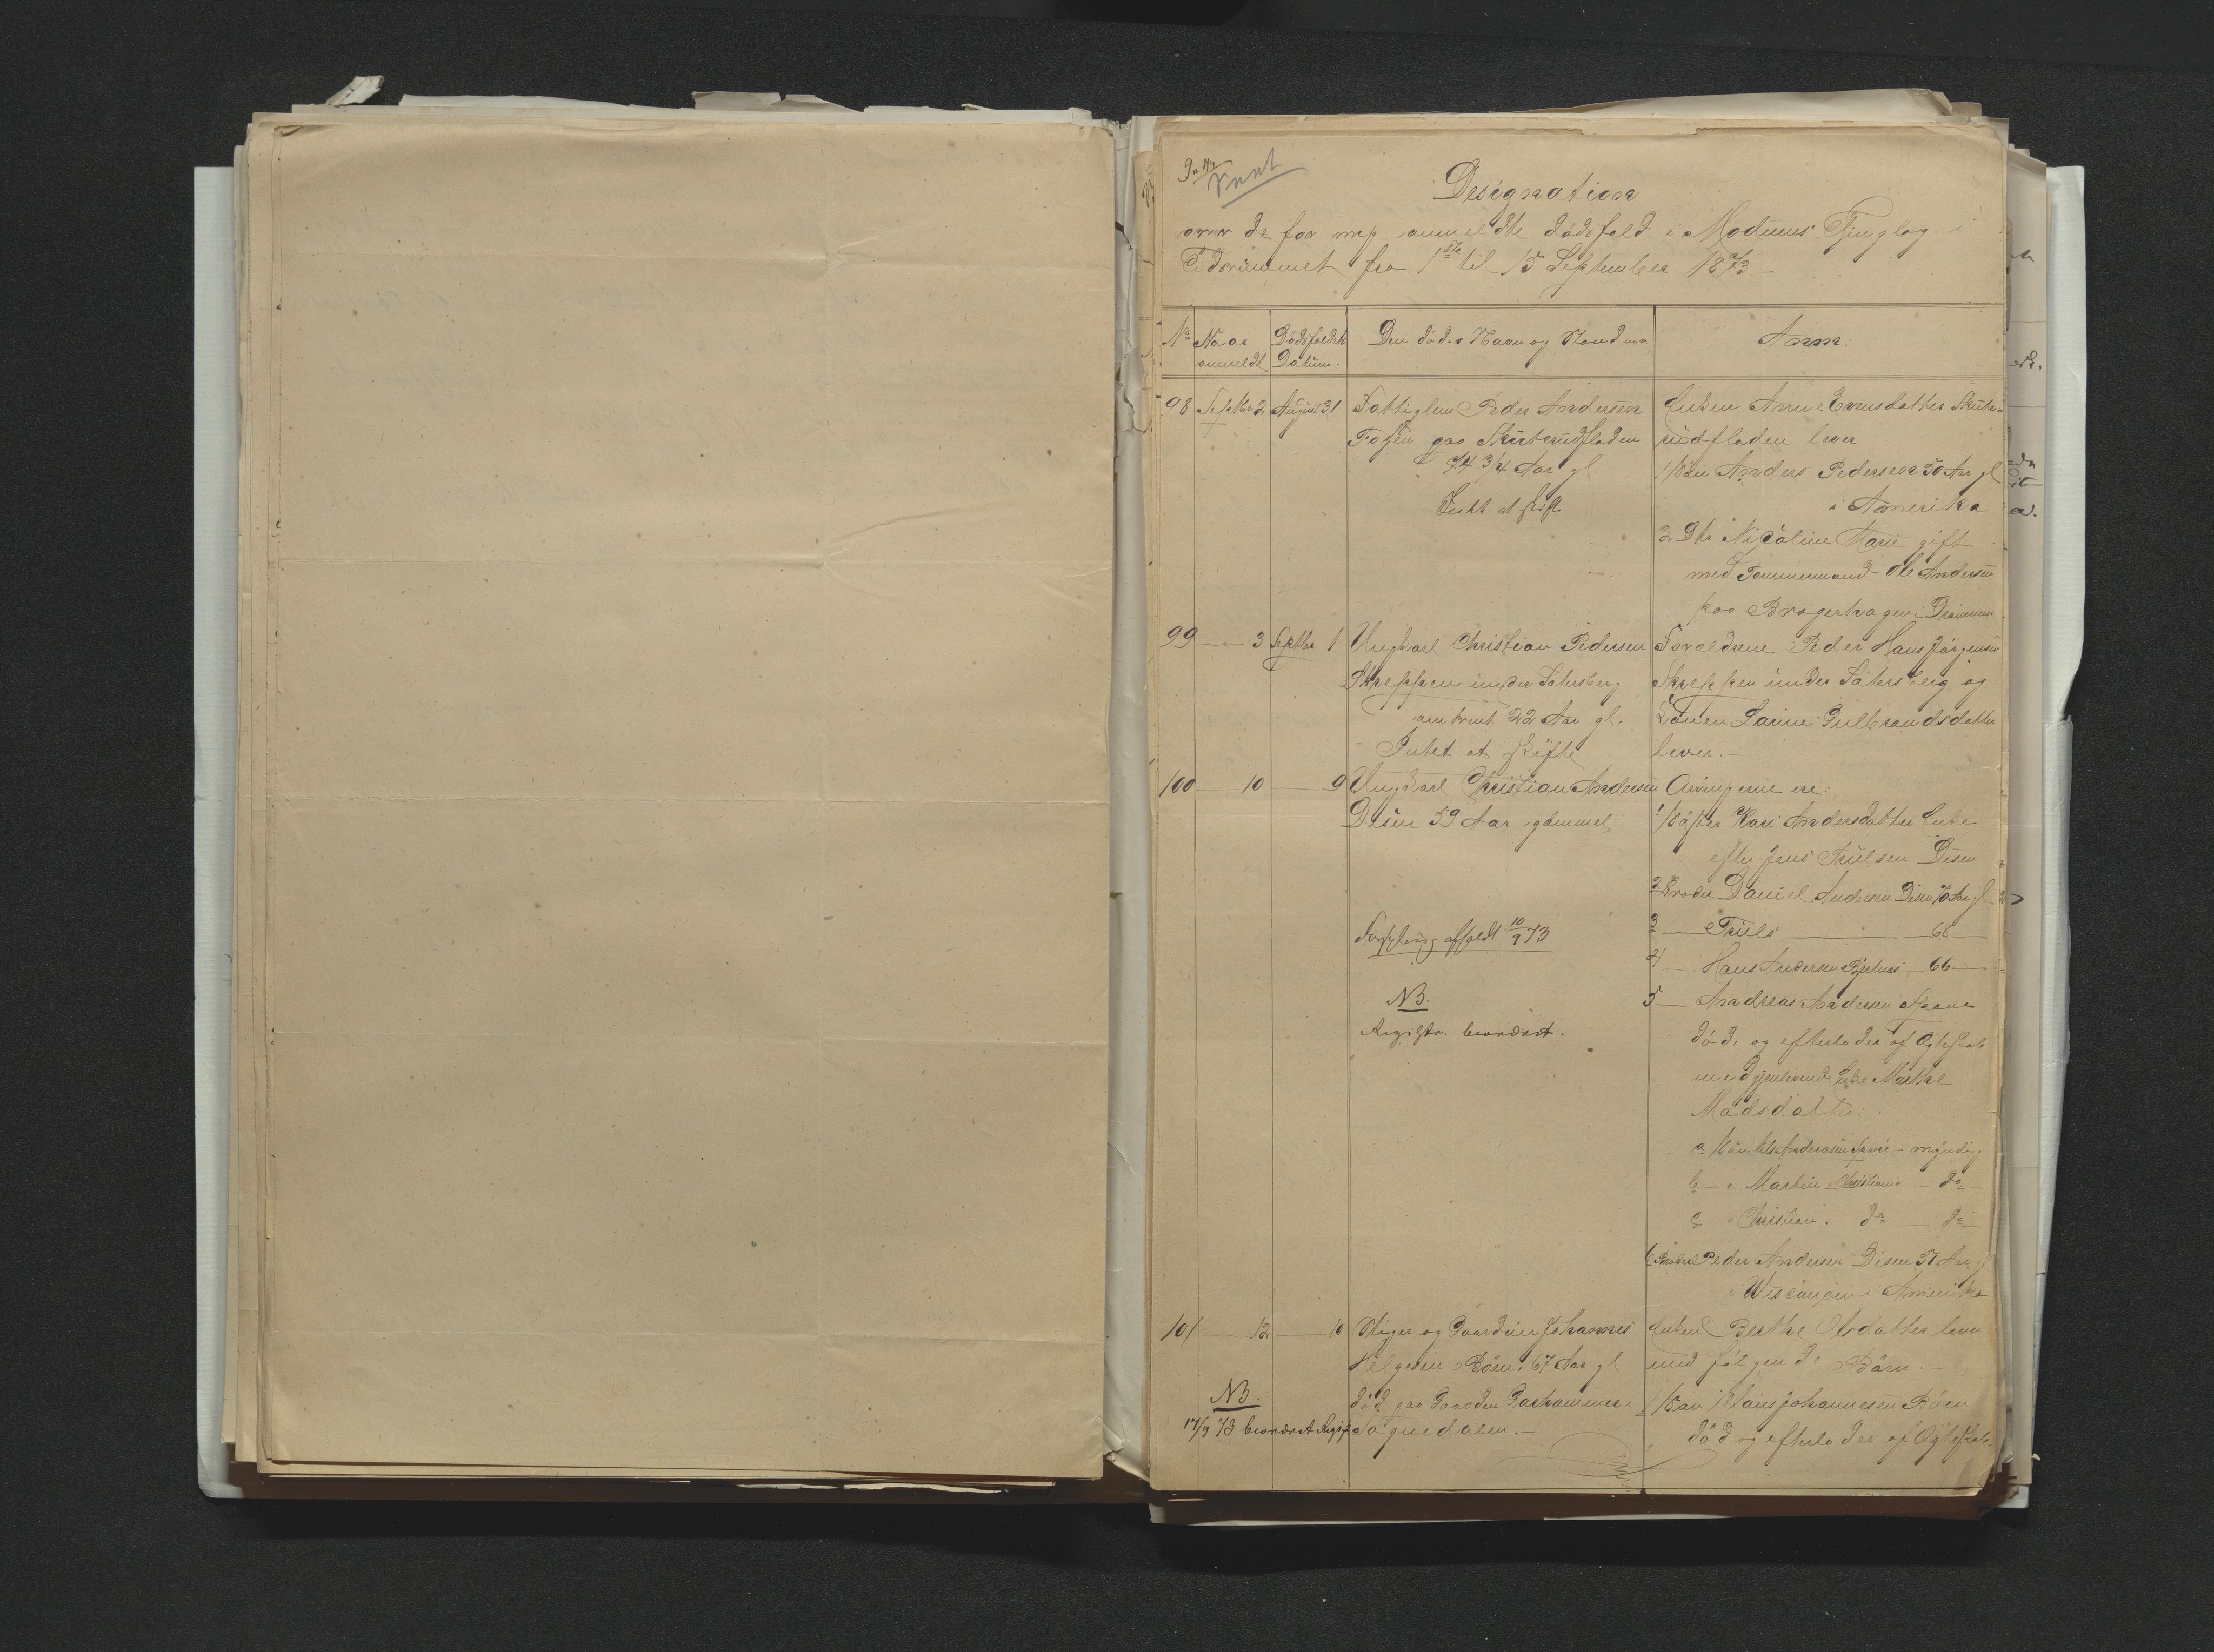 Designation
over de for mig anmeldte Dødsfald i Modums Tinglag i
Tidsrummet fra 1ste til 15 September 1873.
No Naar anmeldt Dødsfaldets Datum. Den dødes Navn og Stand m.v. Anm:
98 Septbr 2 August 31 Fattiglem Peder Andersen
paa Skuterudfladen
74 3/4 Aar gl.
Intet at skifte
Enken Anne Evensdatter Skute-
rudfladen lever
1 Søn Anders Pedersen 50 Aar gl
i Amerika
2 Dtr Nicoline Marie gift
med Tømmermand Ole Andersen
paa Bragernes i Drammen
99 " 3 Septbr 1 Ungkarl Christian Pedersen
Skreppen under Sätersberg
omtrent 22 Aar gl.
Intet at skifte
Forældrene Peder Hans Jørgensen
Skreppen under Sätersberg og
Konen Karine Gulbrandsdatter
lever.
100 10 9 Ungkarl Christian Andersen
Disen 59 Aar gammel
Forsegling afholdt 10/9 73
NB.
Registr. beordret.
Arvingerne ere:
1 Søster Kari Andersdatter Enke
efter Jens Trulsen Disen
2 Broder Daniel Andersen Disen 70 Aar gl
3 — Truls — 68 —
4 — Hans Andersen 66 —
5 — Andreas Andersen
død, og efterlader af Ægteskab
med gjenlevende Enke Marthe
Madsdatter:
a Søn Andreasen — myndig
b — " Martin Christiania — do —
c " Christian. do — do
6 Broder Peder Andersen Disen 51 Aar gl
i Wisconsin i Amerika
101 12 10 Gaardeier Johannes
Helgesen Böen 67 Aar gl
død paa Gaarden
NB.
17/9 73 beordret Regist.
Enken Berthe Olsdatter lever
med følgende Børn.
1 Søn Johannesen Böen
død og efterlader af Ægteskab